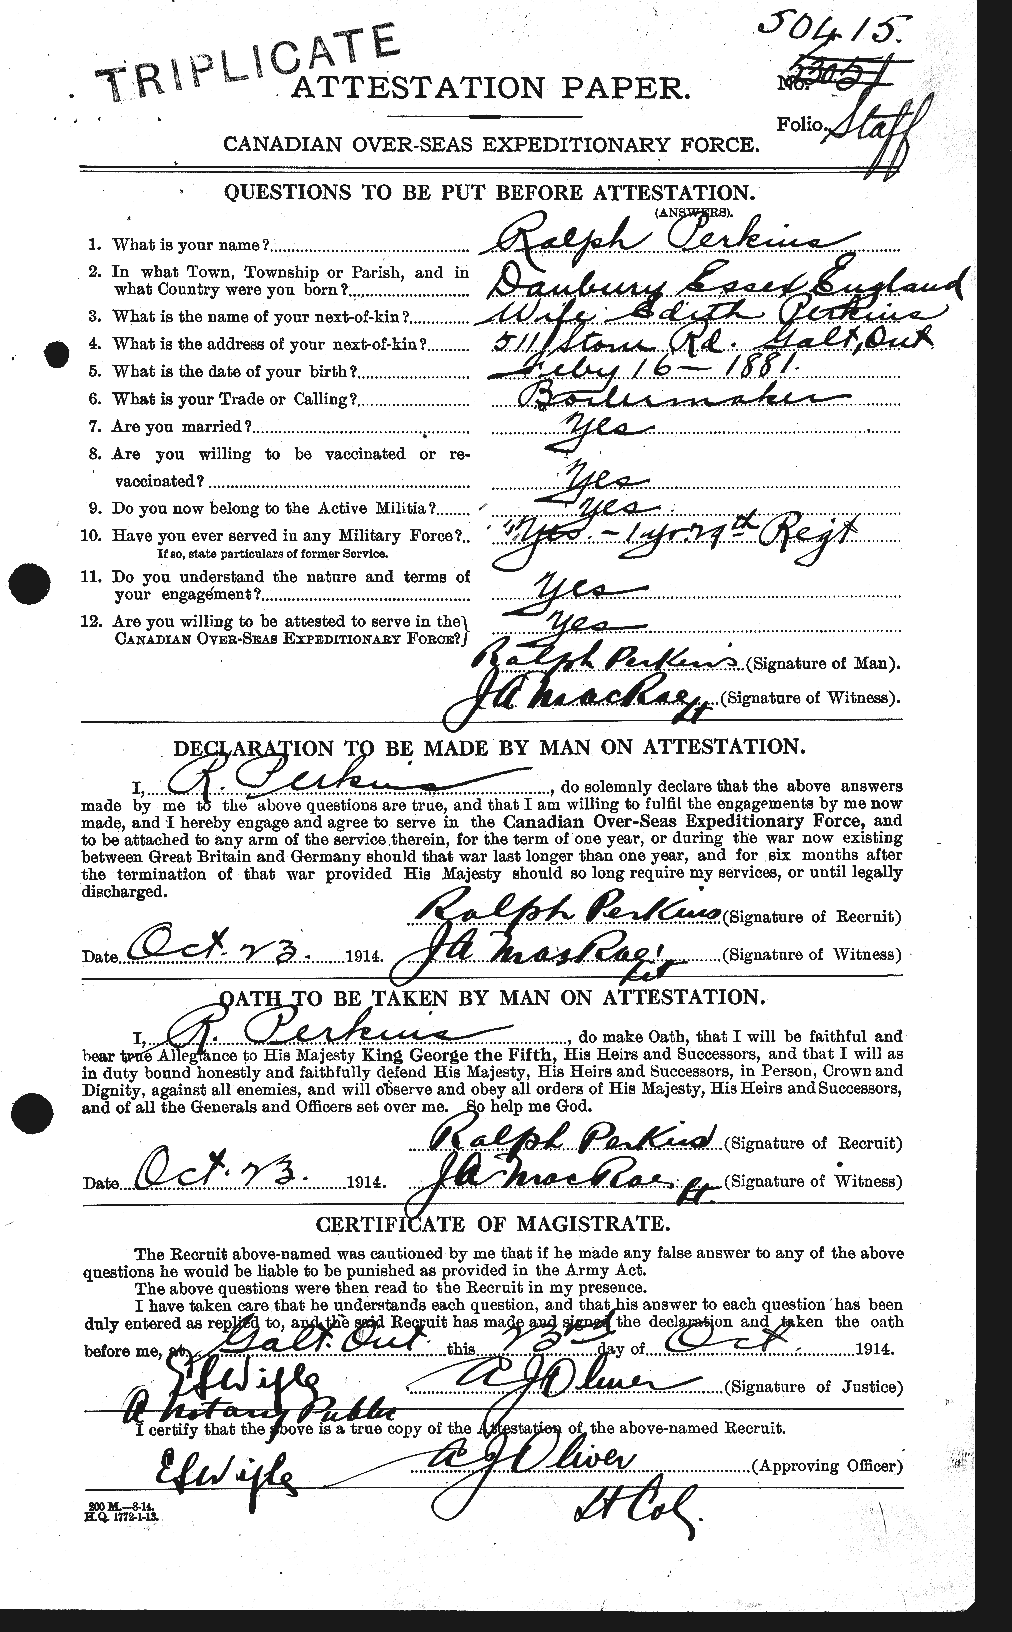 50415.
TRIPLICATE
ATTESTATION PAPER.
No.
Folio. Staff
CANADIAN OVER-SEAS EXPEDITIONARY FORCE.
QUESTIONS TO BE PUT BEFORE ATTESTATION.
(ANSWERS).
1. What is your name? Ralph Perkins
2. In what Town, Township or Parish, and in
what Country were you born? Danbury Essex England
3. What is the name of your next-of-kin? Wife Edith Perkins
4. What is the address of your next-of-kin? 511 Stone Rd. Galt, Ont
5. What is the date of your birth? Feby 16 - 1881.
6. What is your Trade or Calling? Boilermaker
7. Are you married? Yes
8. Are you willing to be vaccinated or re-
vaccinated? Yes
9. Do you now belong to the Active Militia? Yes
10. Have you ever served in any Military Force? Yes. - 1 yr. 29th Regt
If so, state particulars of former Service.
11. Do you understand the nature and terms of
your engagement? Yes
12. Are you willing to be attested to serve in the
CANADIAN OVER-SEAS EXPEDITIONARY FORCE? Yes
Ralph Perkins (Signature of Man).
J A MacRae Lt (Signature of Witness).
DECLARATION TO BE MADE BY MAN ON ATTESTATION.
I, R. Perkins, do solemnly declare that the above answers
made by me to the above questions are true, and that I am willing to fulfil the engagements by me now
made, and I hereby engage and agree to serve in the Canadian Over-Seas Expeditionary Force, and
to be attached to any arm of the service therein, for the term of one year, or during the war now existing
between Great Britain and Germany should that war last longer than one year, and for six months after
the termination of that war provided His Majesty should so long require my services, or until legally
discharged.
Ralph Perkins (Signature of Recruit)
Date Oct. 23. 1914. J A MacRae Lt (Signature of Witness)
OATH TO BE TAKEN BY MAN ON ATTESTATION.
I, R. Perkins, do make Oath, that I will be faithful and
bear true Allegiance to His Majesty King George the Fifth, His Heirs and Successors, and that I will as
in duty bound honestly and faithfully defend His Majesty, His Heirs and Successors, in Person, Crown and
Dignity, against all enemies, and will observe and obey all orders of His Majesty, His Heirs and Successors,
and of all the Generals and Officers set over me. So help me God.
Ralph Perkins (Signature of Recruit)
Date Oct. 23. 1914. J A MacRae Lt. (Signature of Witness)
CERTIFICATE OF MAGISTRATE.
The Recruit above-named was cautioned by me that if he made any false answer to any of the above
questions he would be liable to be punished as provided in the Army Act.
The above questions were then read to the Recruit in my presence.
I have taken care that he understands each question, and that his answer to each question has been
duly entered as replied to, and the said Recruit has made and signed the declaration and taken the oath
before me, at Galt. Ont. this 23rd day of Oct. 1914.
E S Wigle A J Oliver (Signature of Justice)
A Notary Public
I certify that the above is a true copy of the Attestation of the above-named Recruit.
E S Wigle A J Oliver (Approving Officer)
Lt Col.
200 M.—8-14.
H.Q. 1772-1-13.